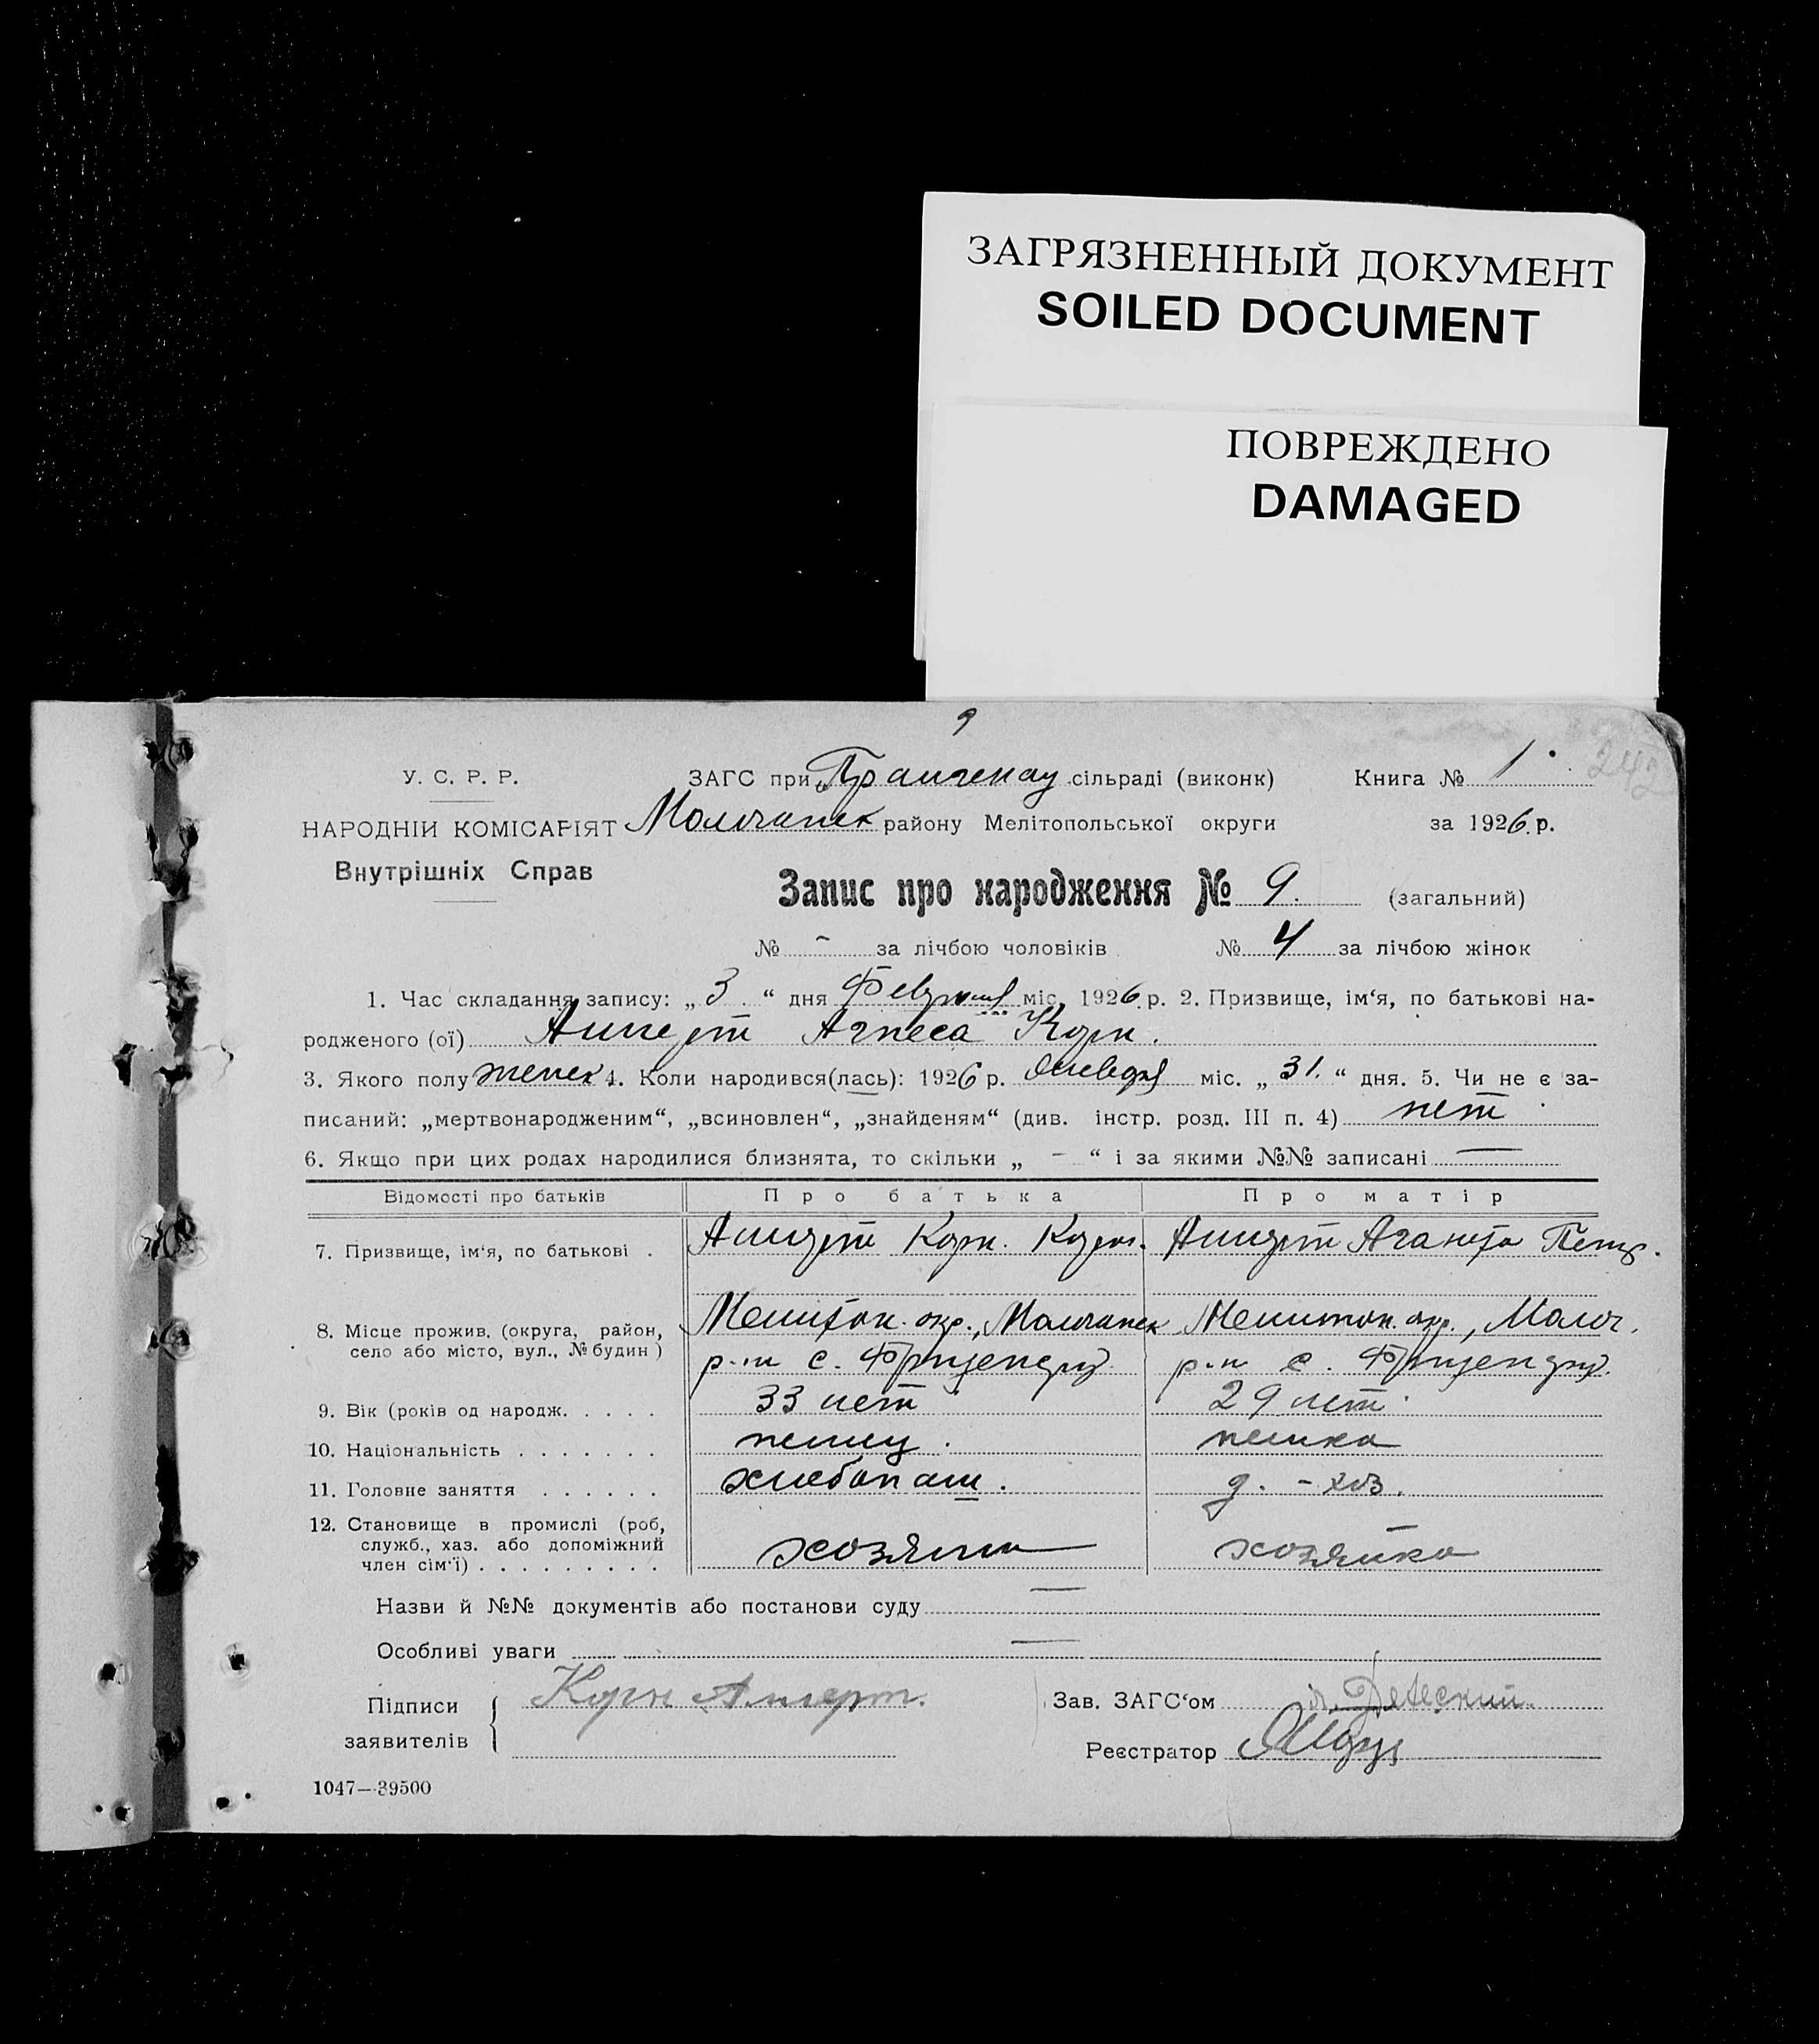 ЗАГРЯЗНЕННЫЙ ДОКУМЕНТ
SOILED DOCUMENT
ПОВРЕЖДЕНО
DAMAGED
9
242
У. С. Р. Р.
ЗАГС при сільраді (виконк)
Книга № 1
НАРОДНІЙ КОМІСАРІЯТ
Молочанск району Мелітопольської округи
за 1926 р.
Внутрішніх Справ
Запис про народження № 9. (загальний)
№ - за лічбою чоловіків № 4 за лічбою жінок
1. Час складання запису: „3“ дня Февраля міс. 1926 р. 2. Призвище, ім‘я, по батькові на-
родженого (ої) Агнеса Корн.
3. Якого полу женск 4. Коли народився(лась): 1926 р. Января міс. „31.“ дня. 5. Чи не є за-
писаний: „мертвонародженим“, „всиновлен“, „знайденям“ (див. інстр. розд. III п. 4) нет
6. Якщо при цих родах народилися близнята, то скільки „ - “ і за якими №№ записані —
Відомості про батьків
Про батька
Про матір
7. Призвище, ім‘я, по батькові . Корн. Корн. Аганета Петр.
8. Місце прожив. (округа, район,
село або місто, вул., № будин )
Мелитоп. окр., Молочанск Мелитоп. окр., Молоч.
р-н с. р-н с.
9. Вік (років од народж. . . . . 33 лет 29 лет
10. Національність . . . . . . . немец . немка
11. Головне заняття . . . . . . хлебопаш. д. - хоз.
12. Становище в промислі (роб,
служб., хаз. або допоміжний
член сім‘ї) . . . . . . . . . хозяин хозяйка
Назви й №№ документів або постанови суду —
Особливі уваги —
Підписи
заявителів
Корн
Зав. ЗАГС‘ом
Реєстратор
1047—39500